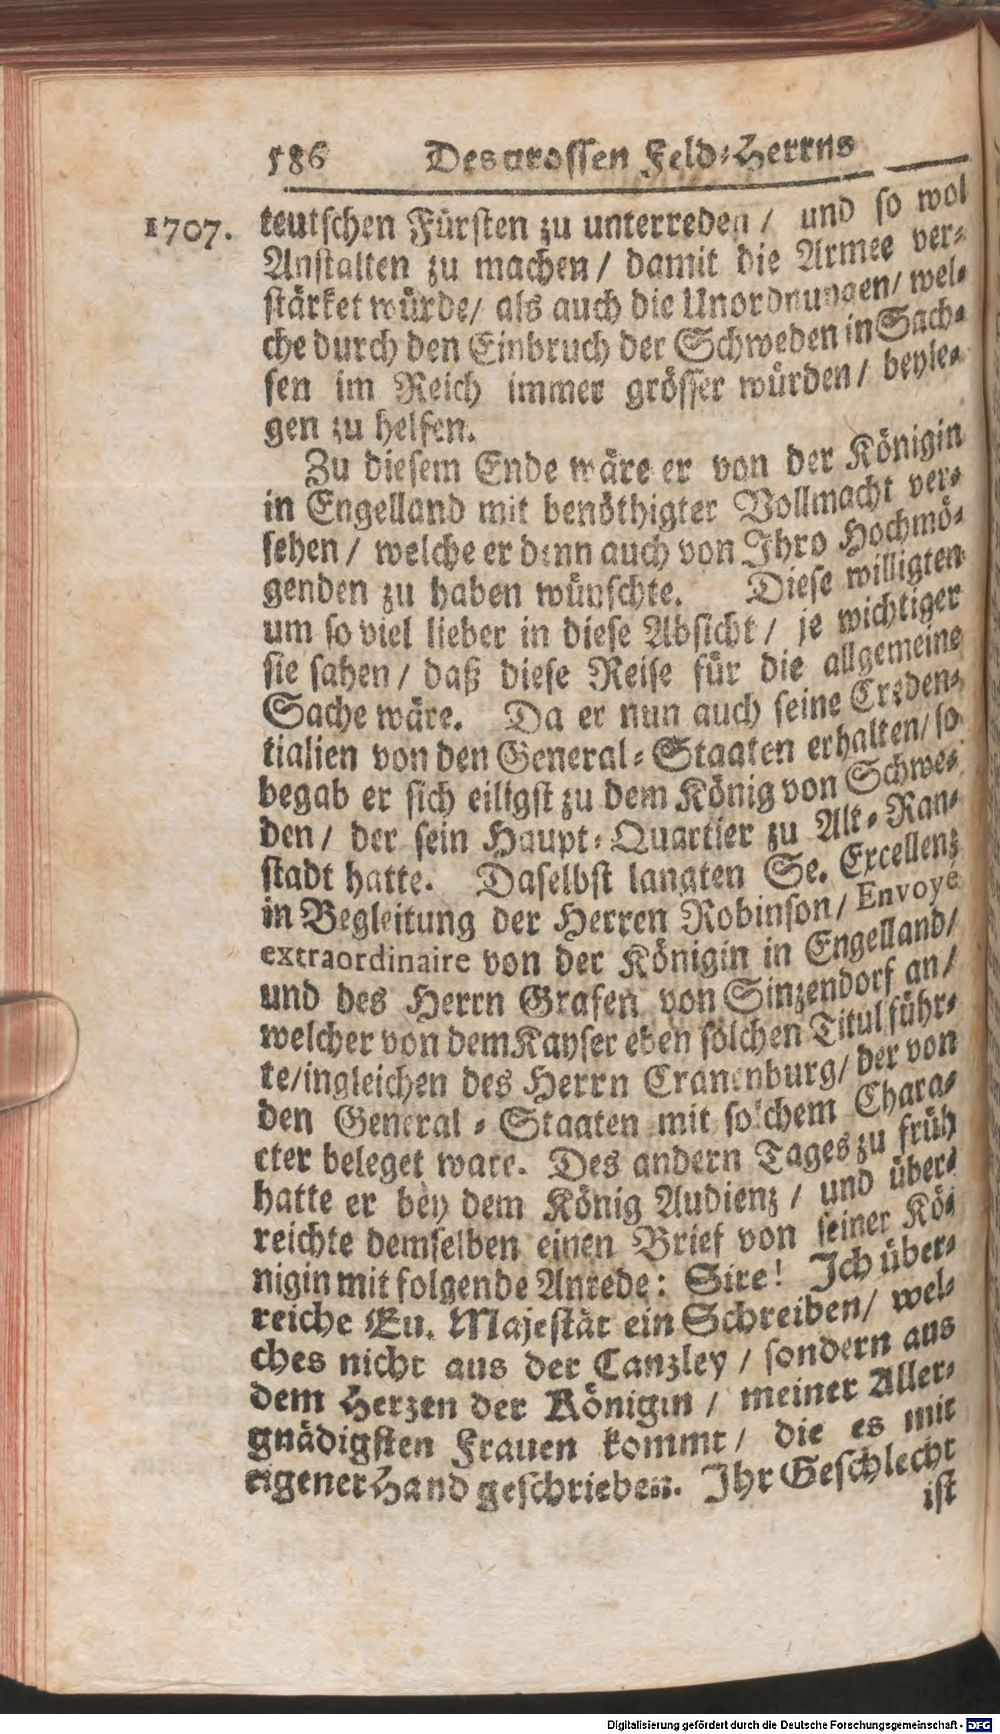 586 Des grossen Feld-Herrns
1707. teutschen Fürsten zu unterreden / und so wol
Anstalten zu machen / damit die Armee ver-
stärket würde / als auch die Unordnungen / wel-
che durch den Einbruch der Schweden in Sach-
sen im Reich immer grösser würden / beyle-
gen zu helfen.
Zu diesem Ende wäre er von der Königin
in Engelland mit benöthigter Vollmacht ver-
sehen / welche er denn auch von Ihro Hochmö-
genden zu haben wünschte. Diese willigten
um so viel lieber in diese Absicht / je wichtiger
sie sahen / daß diese Reise für die allgemeine
Sache wäre. Da er nun auch seine Creden-
tialien von den General-Staaten erhalten / so
begab er sich eiligst zu dem König von Schwe-
den / der sein Haupt-Quartier zu Alt-Ran-
stadt hatte. Daselbst langten Se. Excellenz
in Begleitung der Herren Robinson / Envoye
extraordinaire von der Königin in Engelland /
und des Herrn Grafen von Sinzendorf an /
welcher von dem Kayser eben solchen Titul führ-
te / ingleichen des Herrn Cranenburg / der von
den General-Staaten mit solchem Chara-
cter beleget ware. Des andern Tages zu früh
hatte er bey dem König Audienz / und über-
reichte demselben einen Brief von seiner Kö-
nigin mit folgende Anrede: Sire! Ich über-
reiche Eu. Majestät ein Schreiben / wel-
ches nicht aus der Canzley / sondern aus
dem Herzen der Königin / meiner Aller-
gnädigsten Frauen kommt / die es mit
eigener Hand geschrieben. Ihr Geschlecht
ist
Digitalisierung gefördert durch die Deutsche Forschungsgemeinschaft - DFG